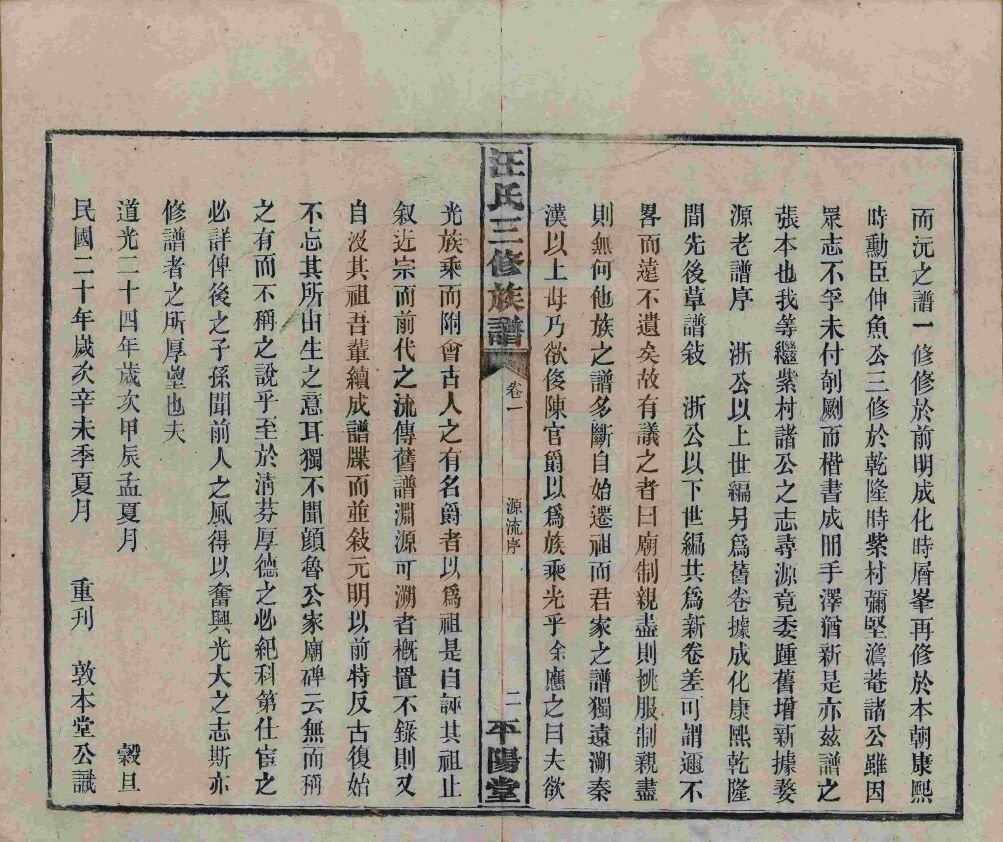 而沅之譜一修修於前明成化時層峯再修於本朝康熙
時勳臣仲魚公三修於乾隆時紫村彌堅澹菴諸公雖因
眾志不孚未付剞劂而楷書成冊手澤猶新是亦茲譜之
張本也我等繼紫村諸公之志尋源竟委踵舊增新據婺
源老譜序 浙公以上世編另爲舊卷據成化康熙乾隆
間先後草譜敍 浙公以下世編共爲新卷差可謂邇不
畧而遠不遺矣故有議之者曰廟制親盡則祧服制親盡
則無何他族之譜多斷自始遷祖而君家之譜獨遠溯秦
漢以上毋乃欲侈陳官爵以爲族乘光乎余應之曰夫欲
汪氏三修族譜 卷一 源流序 二 平陽堂
光族乘而附會古人之有名爵者以爲祖是自誣其祖止
叙近宗而前代之流傳舊譜淵源可溯者概置不錄則又
自沒其祖吾輩續成譜牒而並敍元明以前特反古復始
不忘其所由生之意耳獨不聞顏魯公家廟碑云無而稱
之有而不稱之說乎至於清芬厚德之必紀科第仕宦之
必詳俾後之子孫聞前人之風得以奮興光大之志斯亦
修譜者之所厚望也夫
道光二十四年歲次甲辰孟夏月 穀旦
民國二十年歲次辛未季夏月 重刊 敦本堂公識